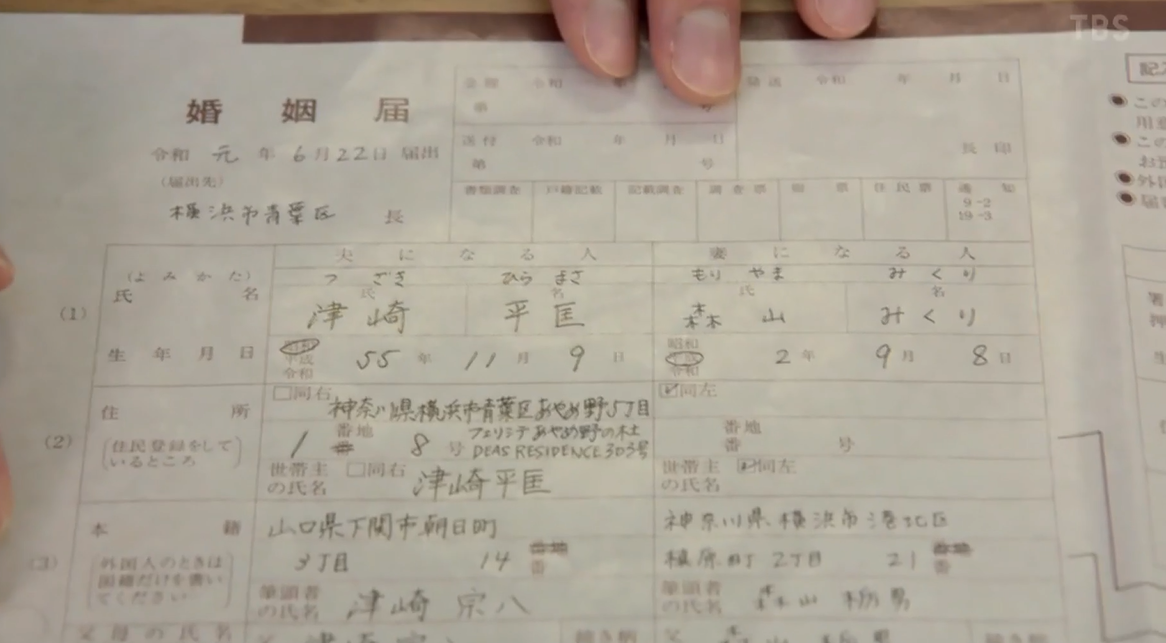 TBS
婚姻届
令和 元 年 6 月 22 日 届出
(届出先)
横浜市青葉区 長
令和 年
第 号
発送 令和 年 月 日
送付 令和 年 月 日
第 号
長印
書類調査 戸籍記載 記載調査 調査票 附票 住民票 通知
9-2
19-3
夫になる人 妻になる人
(よみかた) つざき ひらまさ もりやま みくり
氏名 氏 名 氏 名
(1) 津崎 平匡 森山 みくり
生年月日 昭和 平成 令和 55 年 11 月 9 日 昭和 平成 令和 2 年 9 月 8 日
住所 □同右 ☑同左
神奈川県横浜市青葉区あやめ野5丁目
(2) (住民登録をしているところ) 1 番地 番 8 号 フェリシテあやめ野の杜 番地 番 号
DEAS RESIDENCE 303号
世帯主の氏名 □同右 津崎平匡 世帯主の氏名 ☑同左
本籍 山口県下関市朝日町 神奈川県横浜市港北区
3丁目 14 番地 番 植原町 2丁目 21 番地 番
(3) (外国人のときは国籍だけを書いてください)
筆頭者の氏名 津崎 宗八 筆頭者の氏名 森山 栃男
父母の氏名 父 津崎宗八 続き柄 父 森山 栃男
記入
この
用意
この
お
外国
届
署
押
生